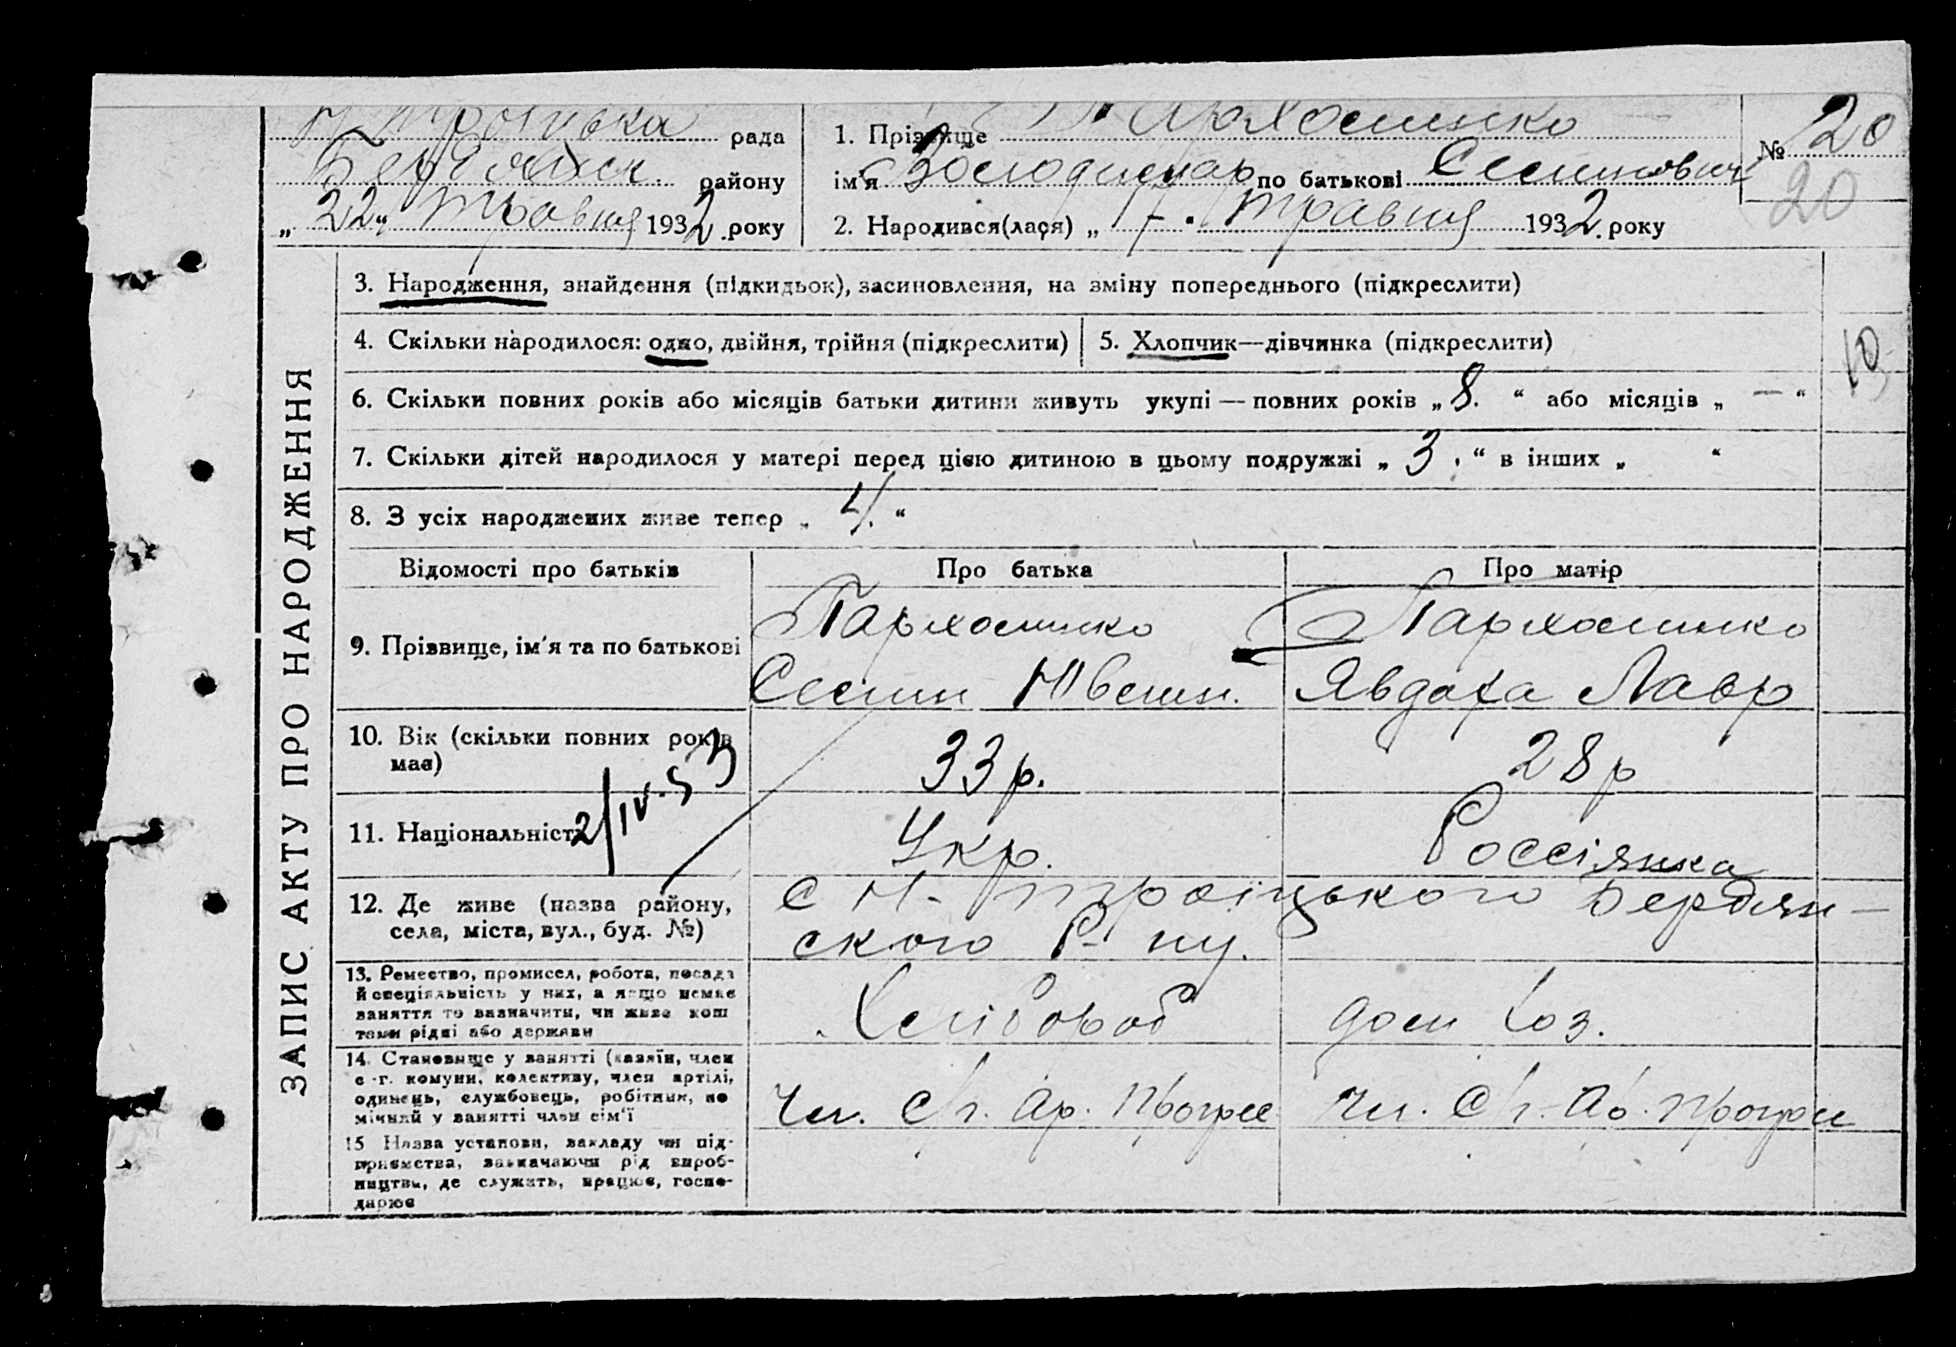 Н Троїцька рада
Бердянск. району
„ 22 " травня 1932 . року
1. Прізвище Пархоменко
ім'я Володимир по батькові Семенович
№ 20
20
2. Народився(лася) „ 17 . травня 1932. року
ЗАПИС АКТУ ПРО НАРОДЖЕННЯ
3. Народження, знайдення (підкидьок), засиновлення, на зміну попереднього (підкреслити)
4. Скільки народилося: одно, двійня, трійня (підкреслити)
5. Хлопчик—дівчинка (підкреслити)
6. Скільки повних років або місяців батьки дитини живуть укупі — повних років „ 8. “ або місяців „ — “
7. Скільки дітей народилося у матері перед цією дитиною в цьому подружжі „ 3 . “ в інших „ “
8. З усіх народжених живе тепер „ 4. “
Відомості про батьків
Про батька
Про матір
9. Прізвище, ім'я та по батькові
Пархоменко
Семен
Пархоменко
Явдоха Лавр
10. Вік (скільки повних років
має)
33 р.
28 р
11. Національність
2/IV-53
Укр.
Россіянка
12. Де живе (назва району,
села, міста, вул., буд. №)
с Н-Троїцького Бердян-
ского Р-ну.
13. Ремество, промисел, робота, посада
й спеціяльність у них, а якщо немає
заняття то зазначити, чи живе кош
тами рідні або держави
Хлібороб
дом хоз.
14. Становище у занятті (хазяїн, член
с-г. комуни, колективу, член артілі,
одинець, службовець, робітник, по
мічний у занятті член сім'ї
чл. С/г. Ар. Прогрес
чл. С/г. Ар. Прогрес
15 Назва установи, закладу чи під-
приємства, зазначаючи рід вироб-
ництва, де служить, працює, госпо-
дарює